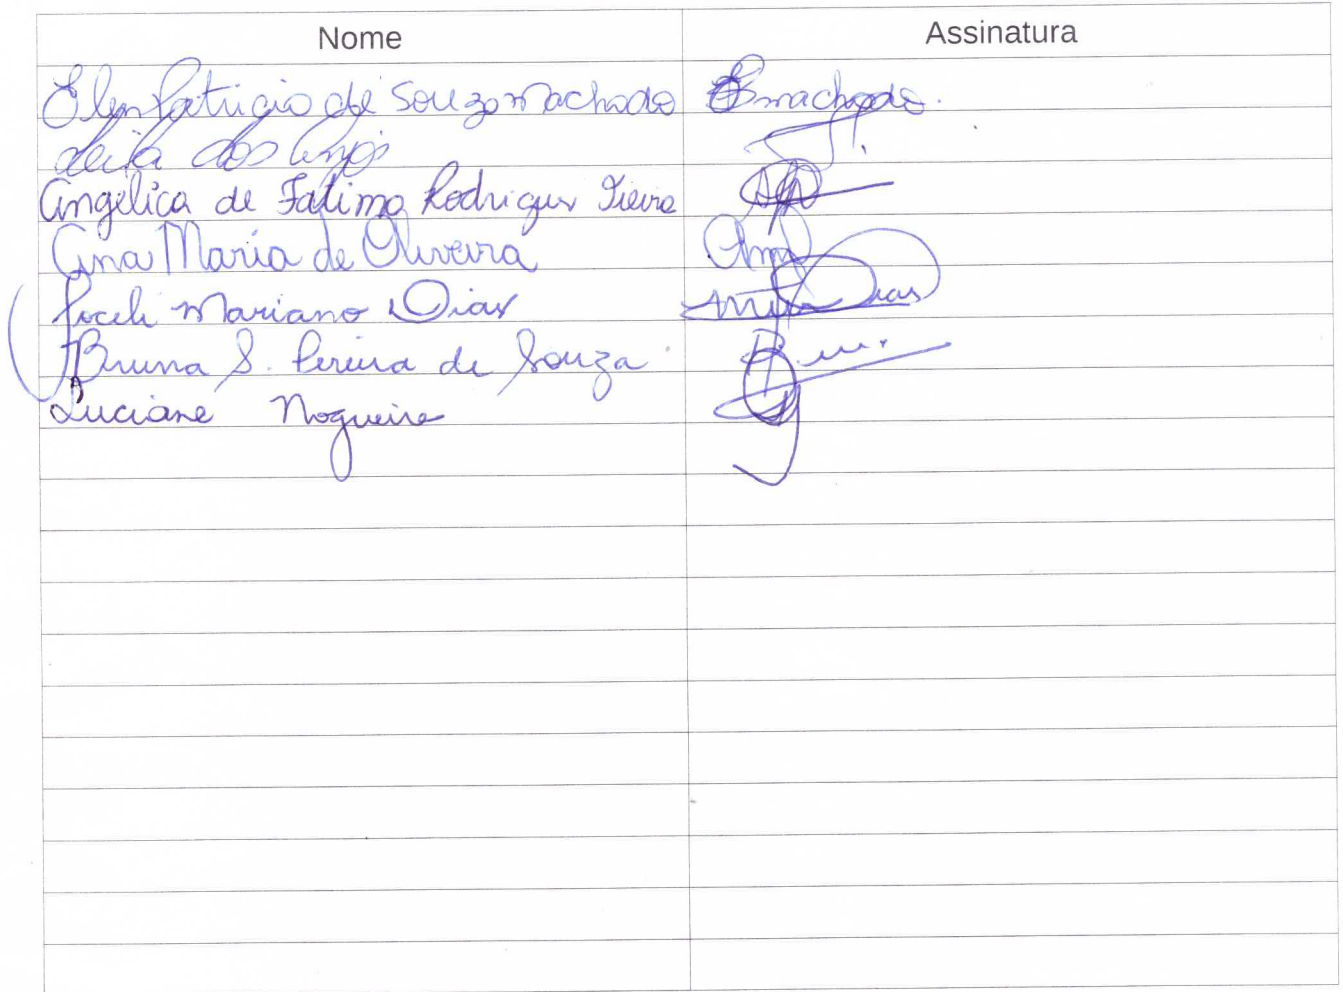 Nome Assinatura
Elen Patricia de Souza Machado Emachado.
Leila dos Anjos
Angélica de Fatima Rodrigues Vieira
Ana Maria de Oliveira Ana
Joceli Mariano Dias Dias
Bruna S. Pereira de Souza
Luciane Nogueira